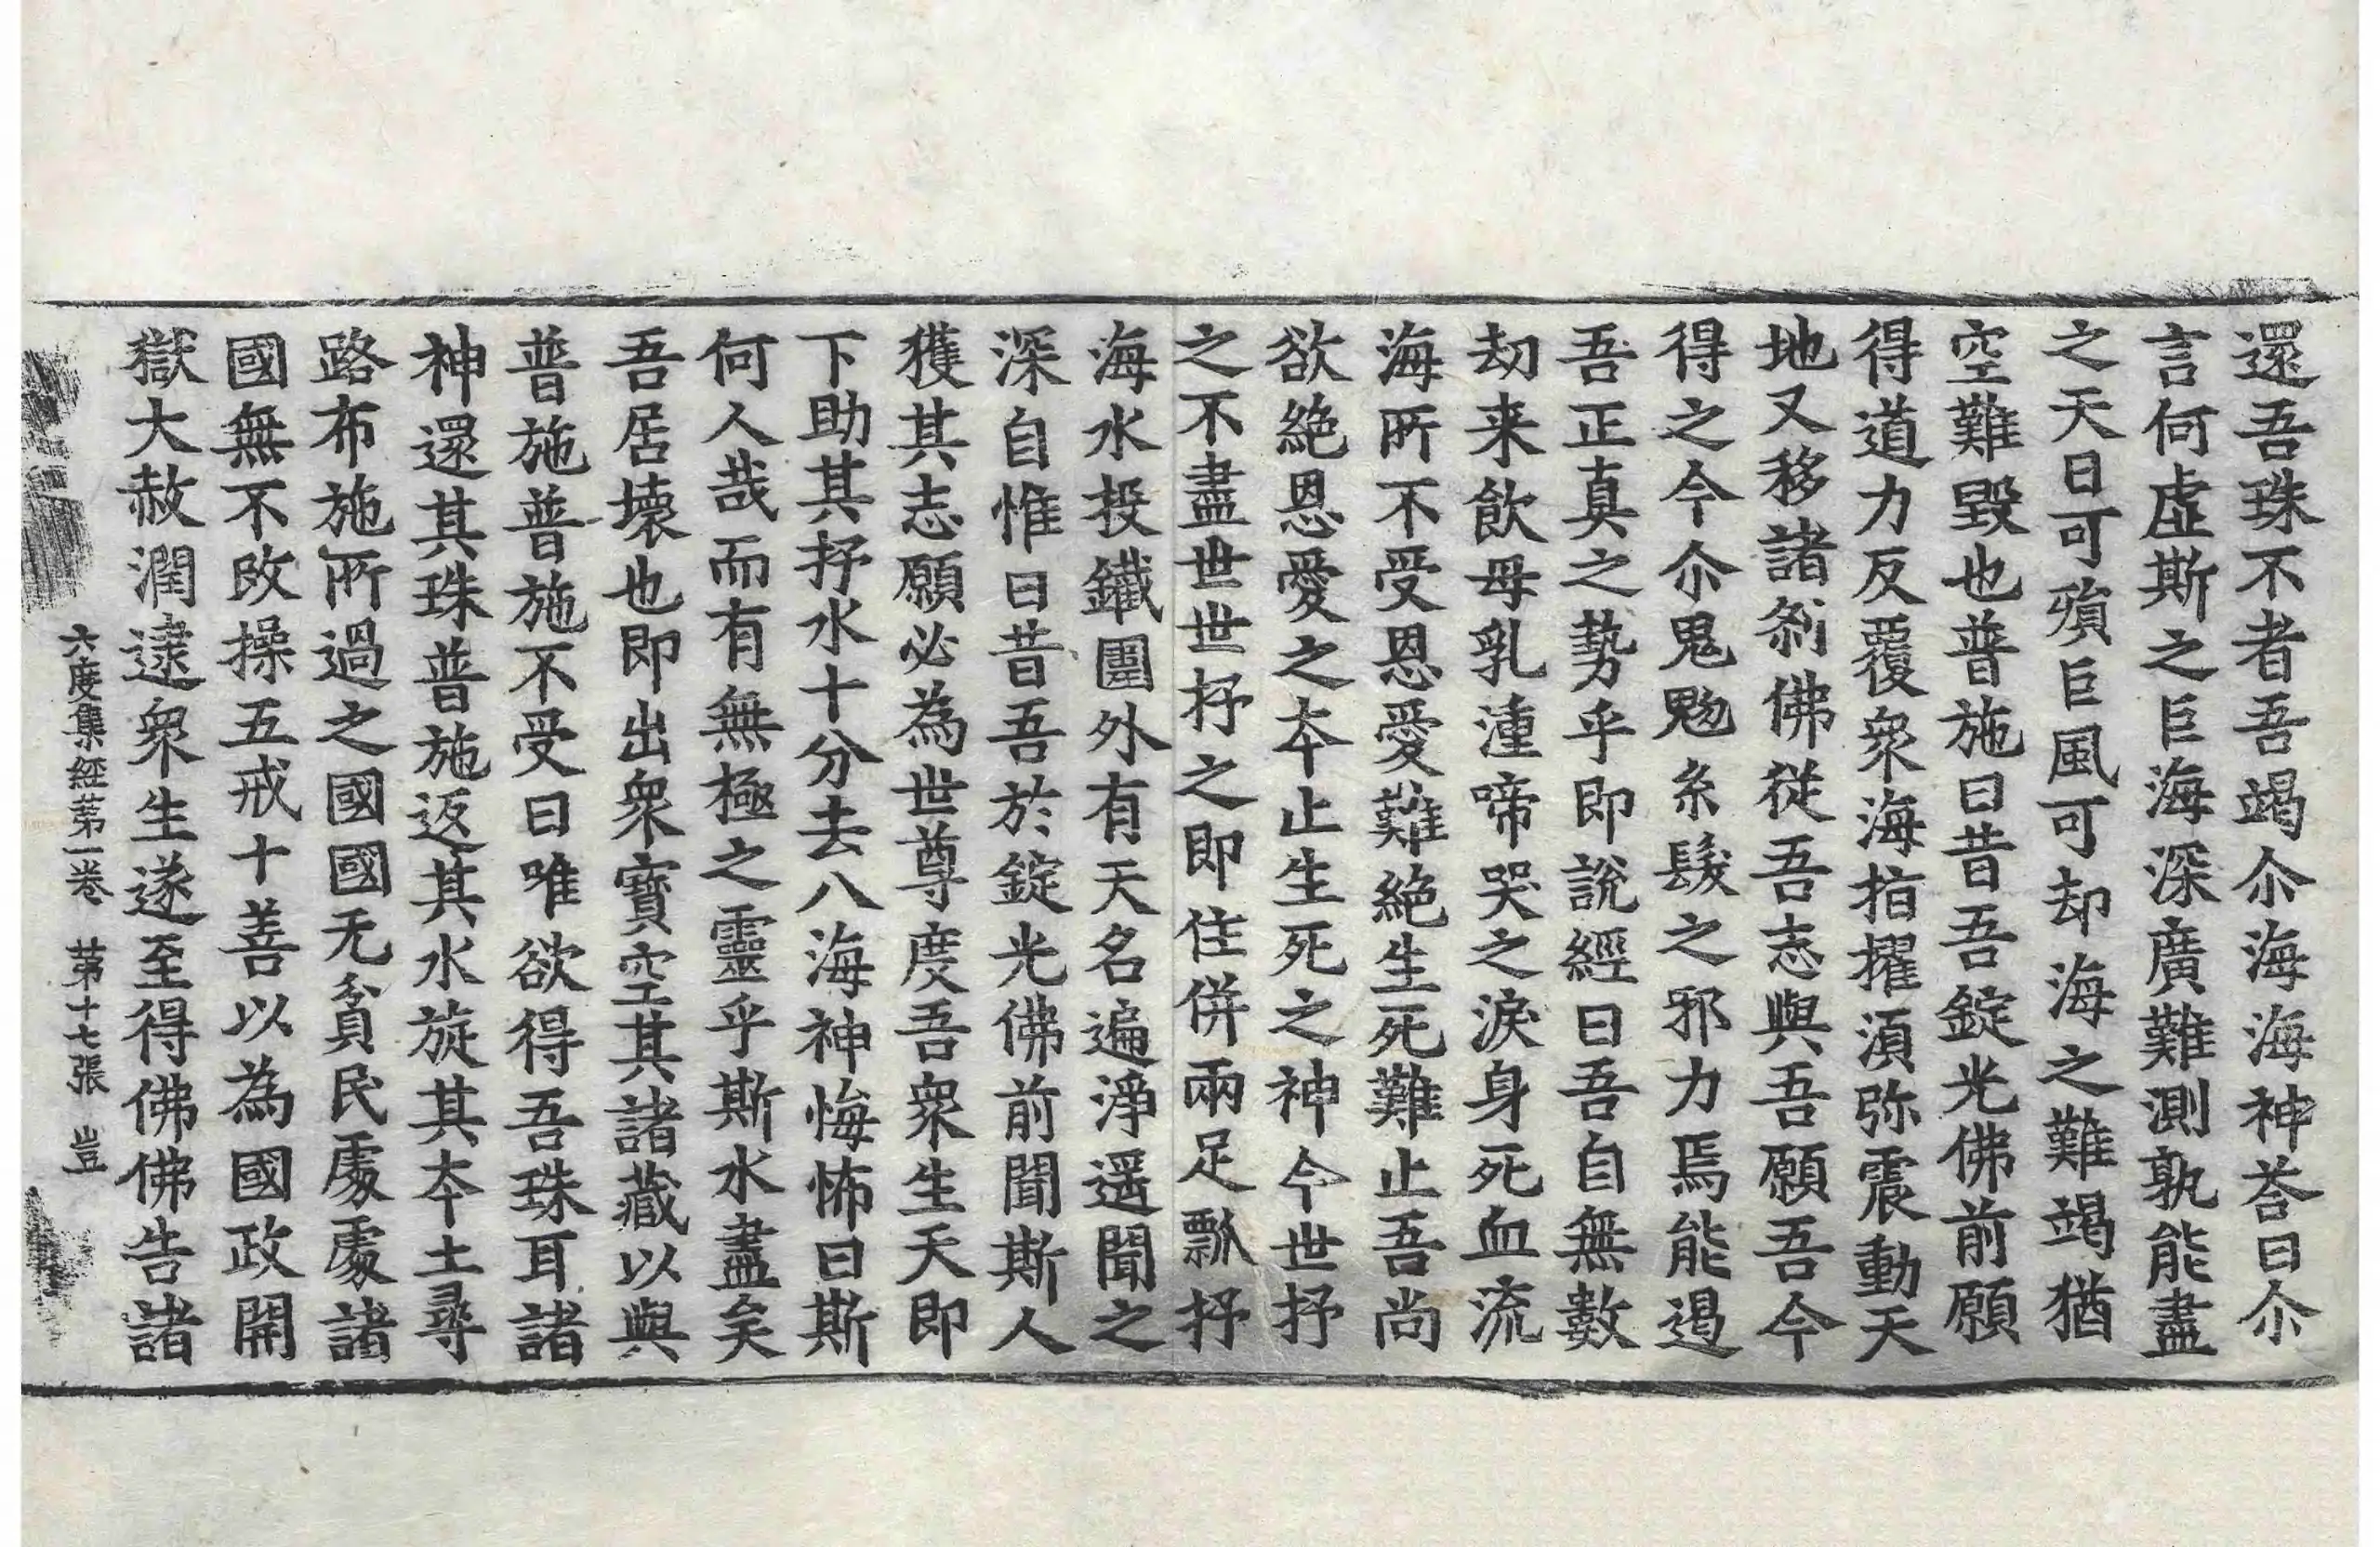 還吾珠不者吾竭尒海海神荅曰尒
言何虛斯之巨海深廣難測孰能盡
之天日可殞巨風可却海之難竭猶
空難毀也普施曰昔吾錠光佛前願
得道力反覆衆海指擢湏弥震動天
地又移諸刹佛從吾志與吾願吾今
得之今尒鬼魅糸髮之邪力焉能遏
吾正真之勢乎即說經曰吾自無數
劫来飲母乳湩啼哭之淚身死血流
海所不受恩愛難絕生死難止吾尚
欲絕恩愛之夲止生死之神今世抒
之不盡世世抒之即住併兩足瓢抒
海水投鐵圍外有天名遍淨遥聞之
深自惟曰昔吾於錠光佛前聞斯人
獲其志願必為世尊度吾衆生天即
下助其抒水十分去八海神悔怖曰斯
何人哉而有無極之靈乎斯水盡矣
吾居壞也即出衆寶空其諸藏以與
普施普施不受曰唯欲得吾珠耳諸
神還其珠普施返其水旋其夲土尋
路布施所過之國國无貧民處處諸
國無不改操五戒十善以為國政開
獄大赦潤逮衆生遂至得佛佛告諸
六度集經苐一卷 苐十七張 豈